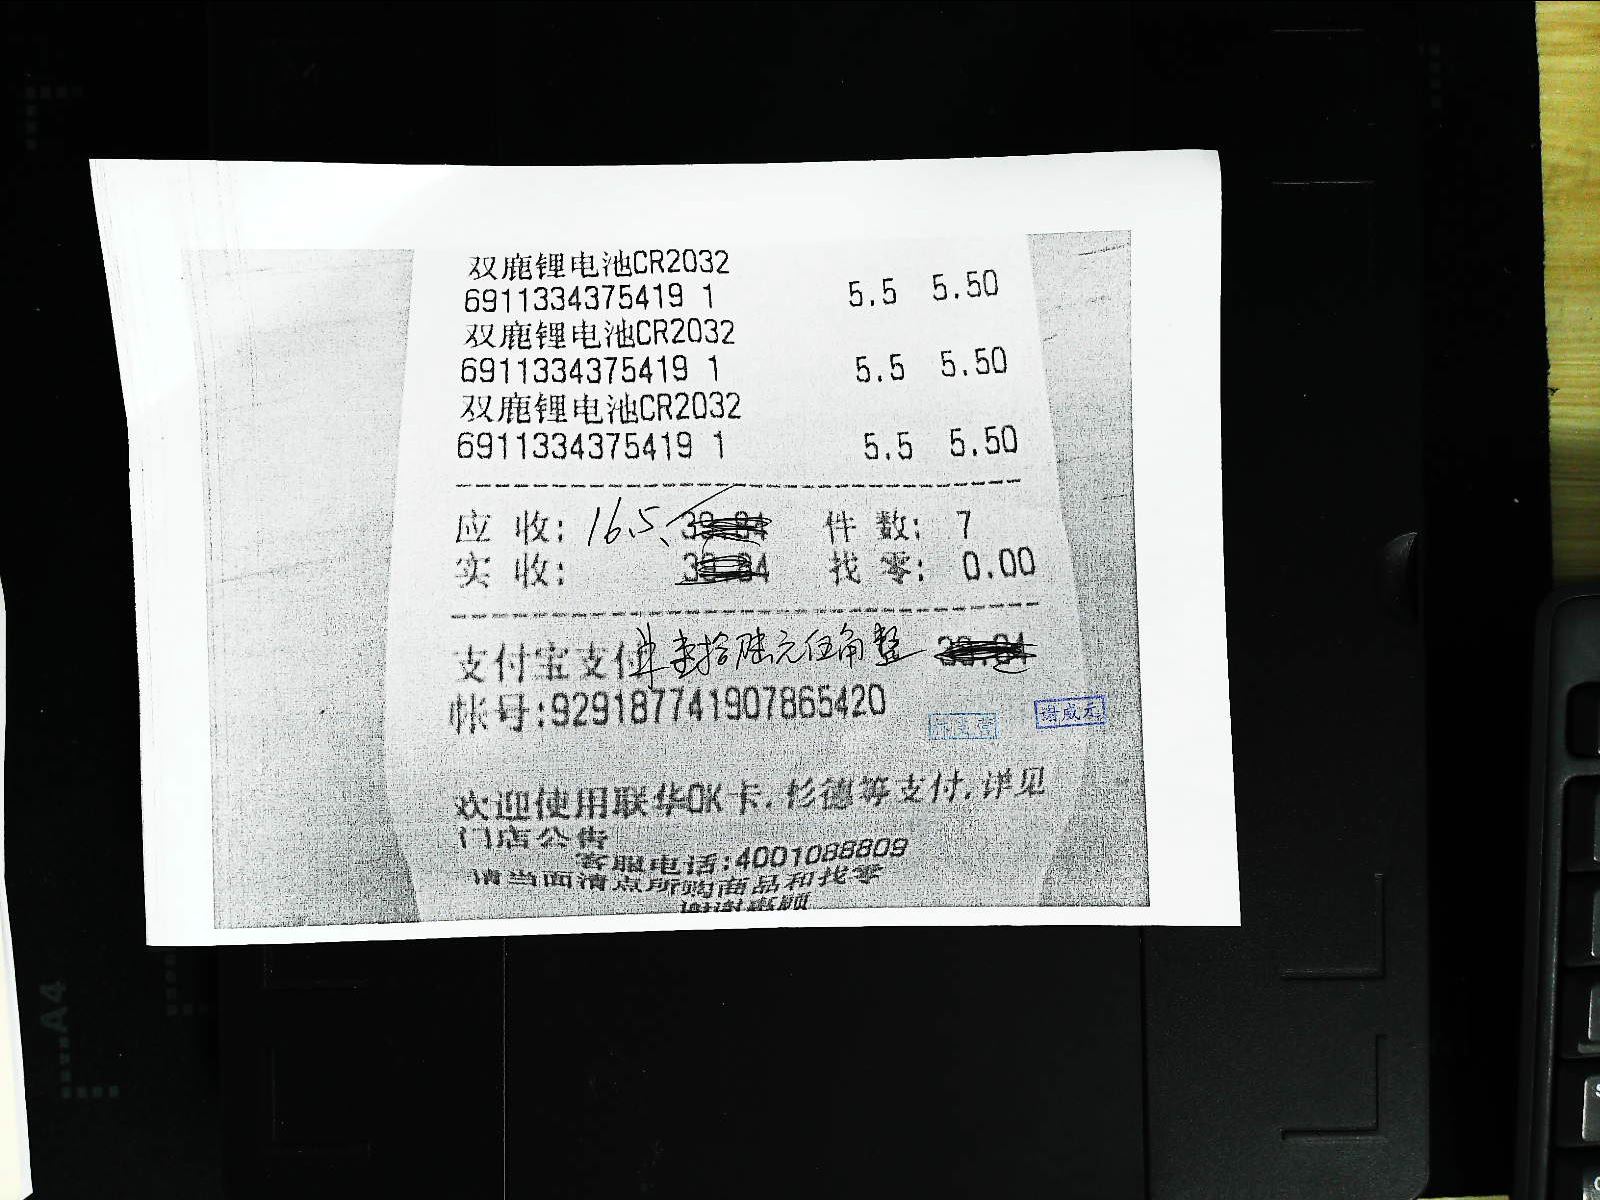 双鹿锂电池CR2032
6911334375419 1 5.5 5.50
双鹿锂电池CR2032
6911334375419 1 5.5 5.50
双鹿锂电池CR2032
6911334375419 1 5.5 5.50
应 收: 16.5 件 数: 7
实 收: 找 零: 0.00
支付宝支付 壹拾陆元伍角整
帐号:929187741907865420
欢迎使用联华OK卡,杉德等支付,详见
门店公告
客服电话:4001088809
请当面清点所购商品和找零
谢谢惠顾
A4